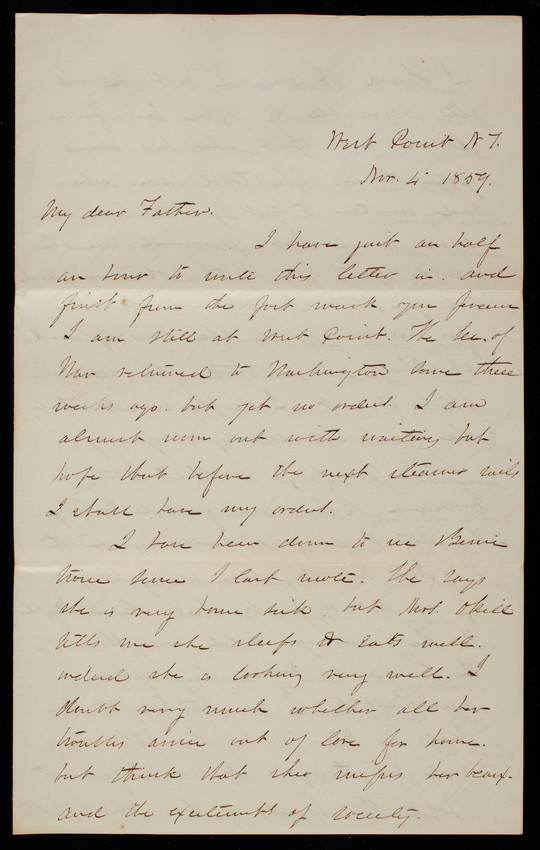 West Point N.Y.
Nov. 4 1859.
My dear Father.
I have just an half
an hour to write this letter in. and
first from the post mark you
I am still at West Point. The Sec. of
War returned to Washington some three
weeks ago. but yet no orders. I am
almost worn out with waiting but
hope that before the next steamer sails
I shall have my orders.
I have been down to see Bessie
twice since I last wrote. She says
she is very home sick. but Mrs. Okill
tells me she sleeps & eats well.
indeed she is looking very well. I
doubt very much whether all her
troubles arise out of love for home.
but think that she misses her beaux.
and the excitements of society.